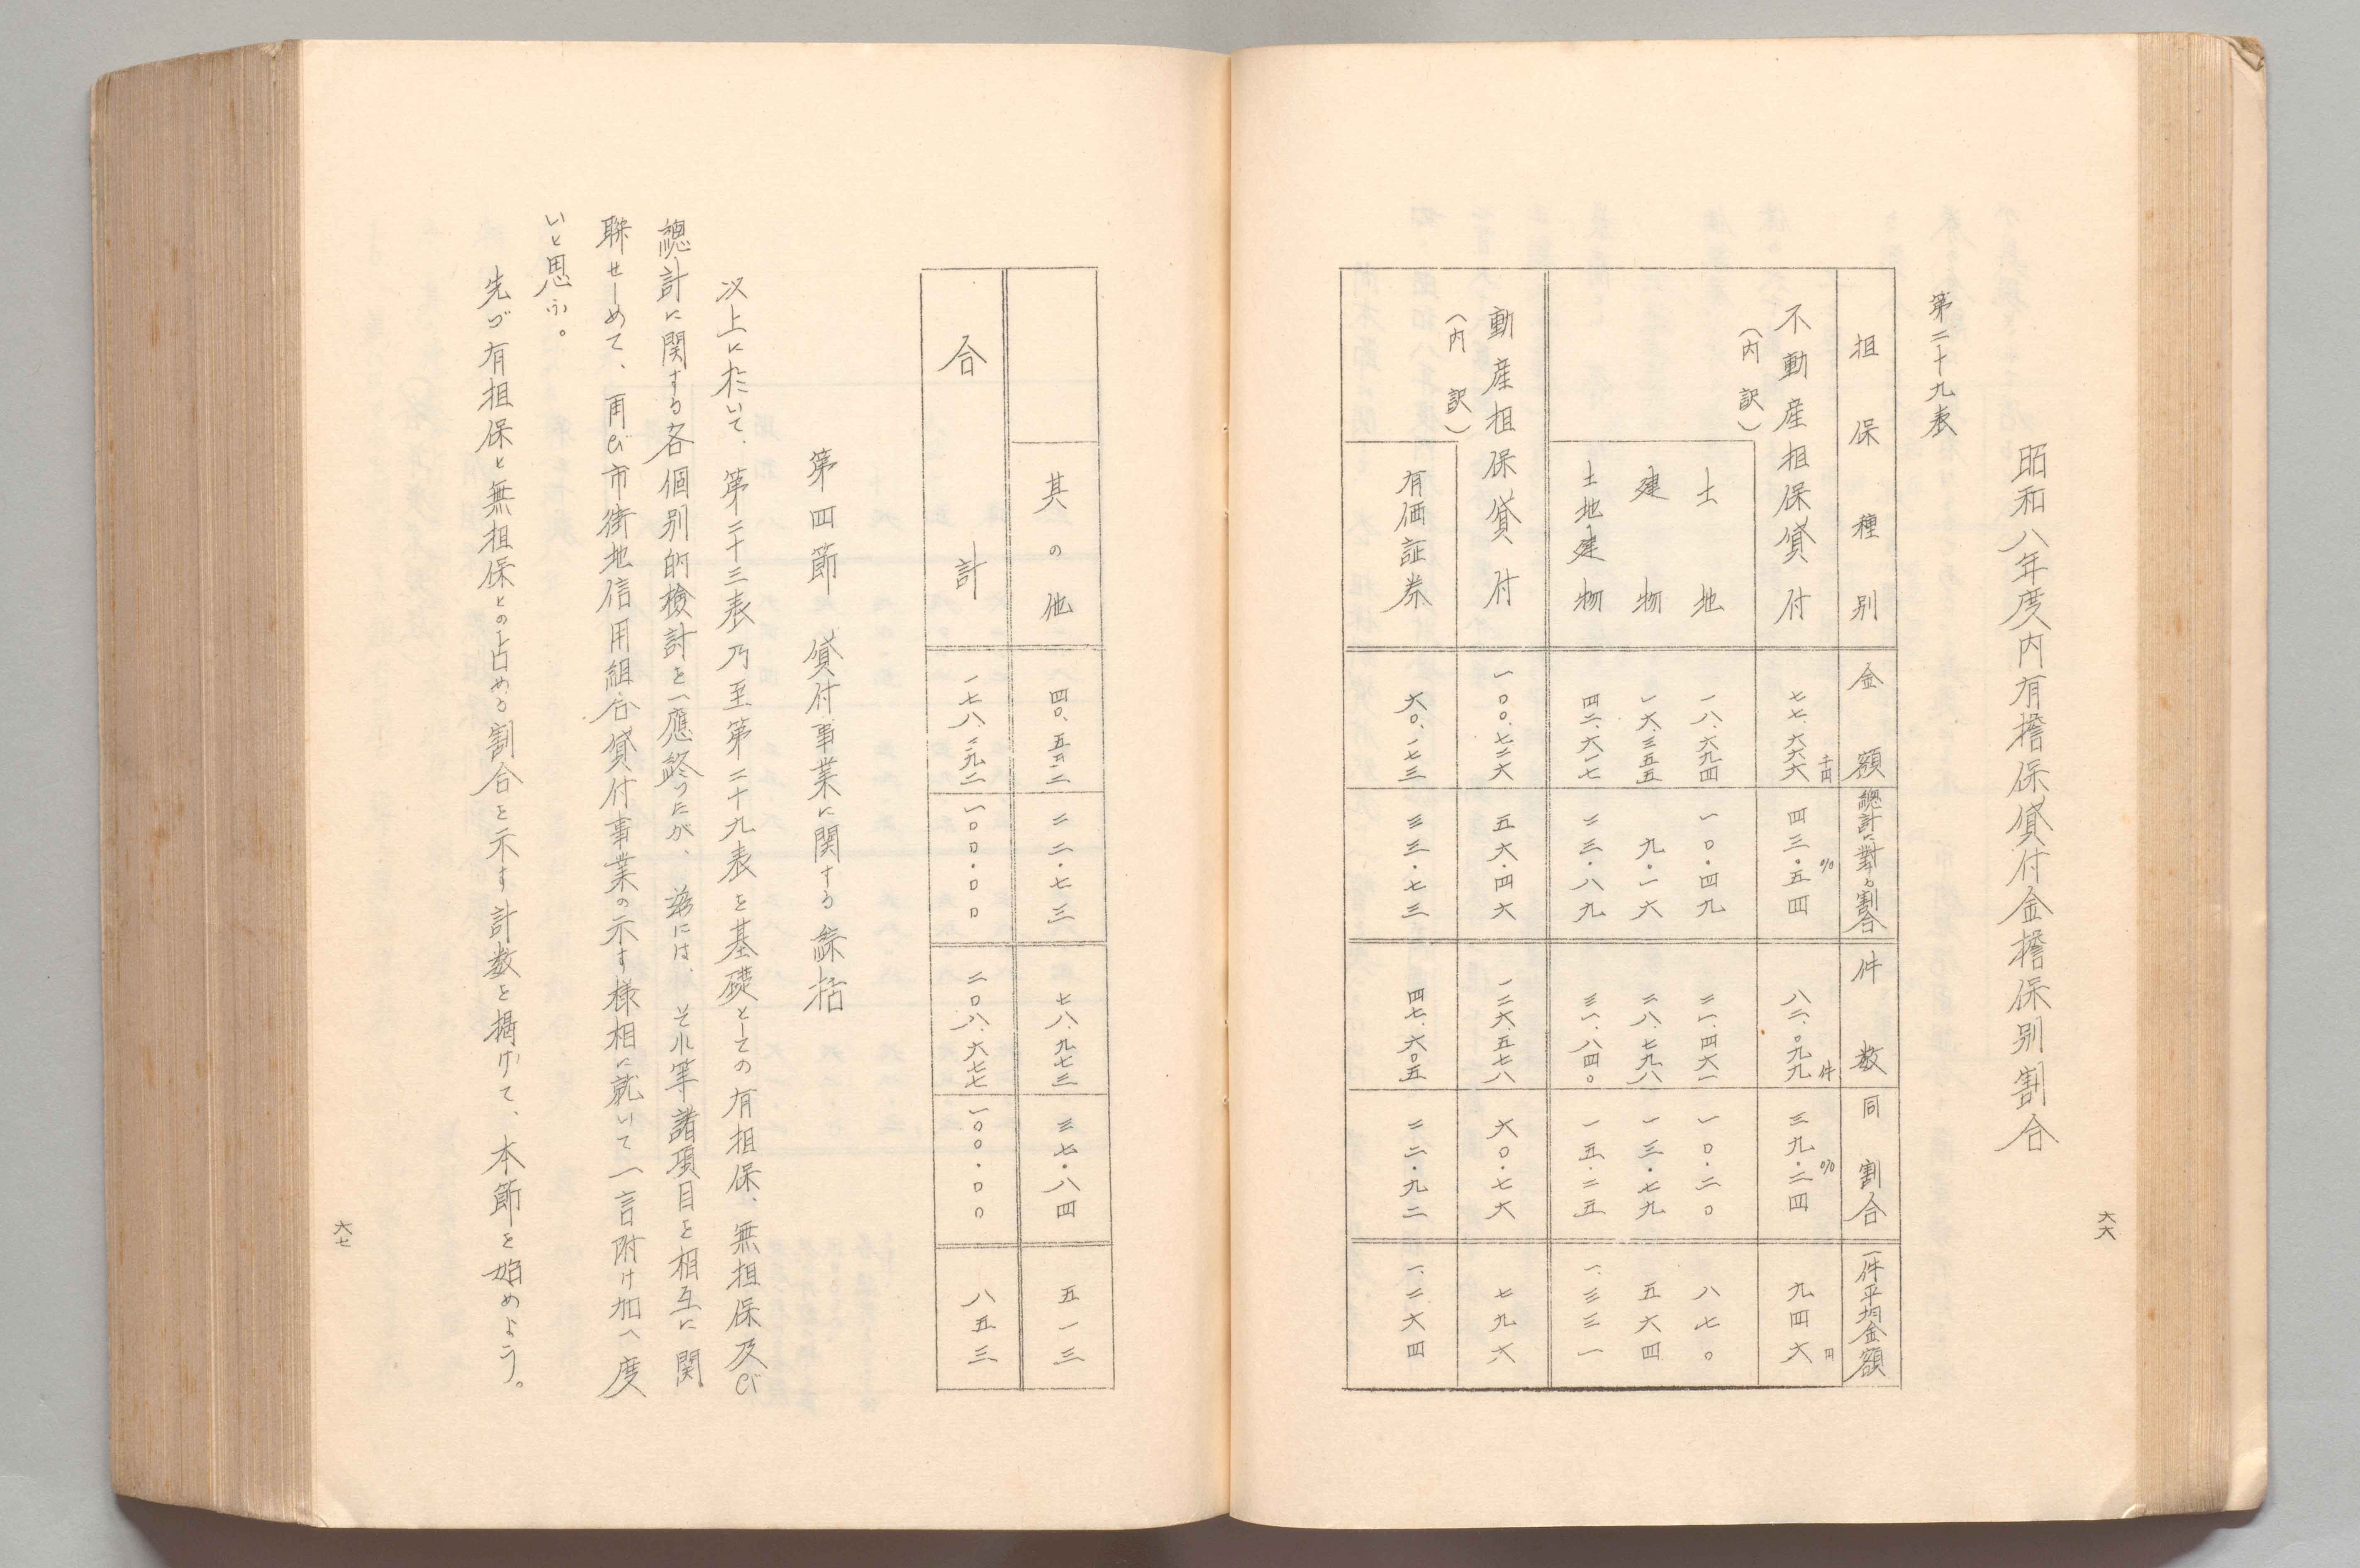 昭和八年度内有擔保貸付金擔保別割合
第二十九表
担保種別　金額　總計に對する割合　件数　同割合　一件平均金額
不動産担保貸付　七七、六六六千円　四三・五四%　八二、〇九九件　三九・二四%　九四六円
（内訳）
土地　一八、六九四　一〇・四九　二一、四六一　一〇・二〇　八七〇
建物　一六、三五五　九・一六　二八、七九八　一三・七九　五六四
土地建物　四二、六一七　二三・八九　三一、八四〇　一五・二五　一、三三一
動産担保貸付　一〇〇、七二六　五六・四六　一二六、五七八　六〇・七六　七九六
（内訳）
有価証券　六〇、一七三　三三・七三　四七、六〇五　二二・九二　一、二六四
六六
其の他　四〇、五五二　二二・七三　七八、九七三　三七・八四　五一三
合計　一七八、三九二　一〇〇・〇〇　二〇八、六七七　一〇〇・〇〇　八五三
第四節　貸付事業に関する綜括
以上に於いて、第二十三表乃至第二十九表を基礎としての有担保、無担保及び
總計に関する各個別的檢討を一應終つたが、茲には、それ等諸項目を相互に関
聯せしめて、再び市街地信用組合貸付事業の示す様相に就いて一言附け加へ度
いと思ふ。
先づ有担保と無担保との占める割合を示す計数を掲げて、本節を始めよう。
六七